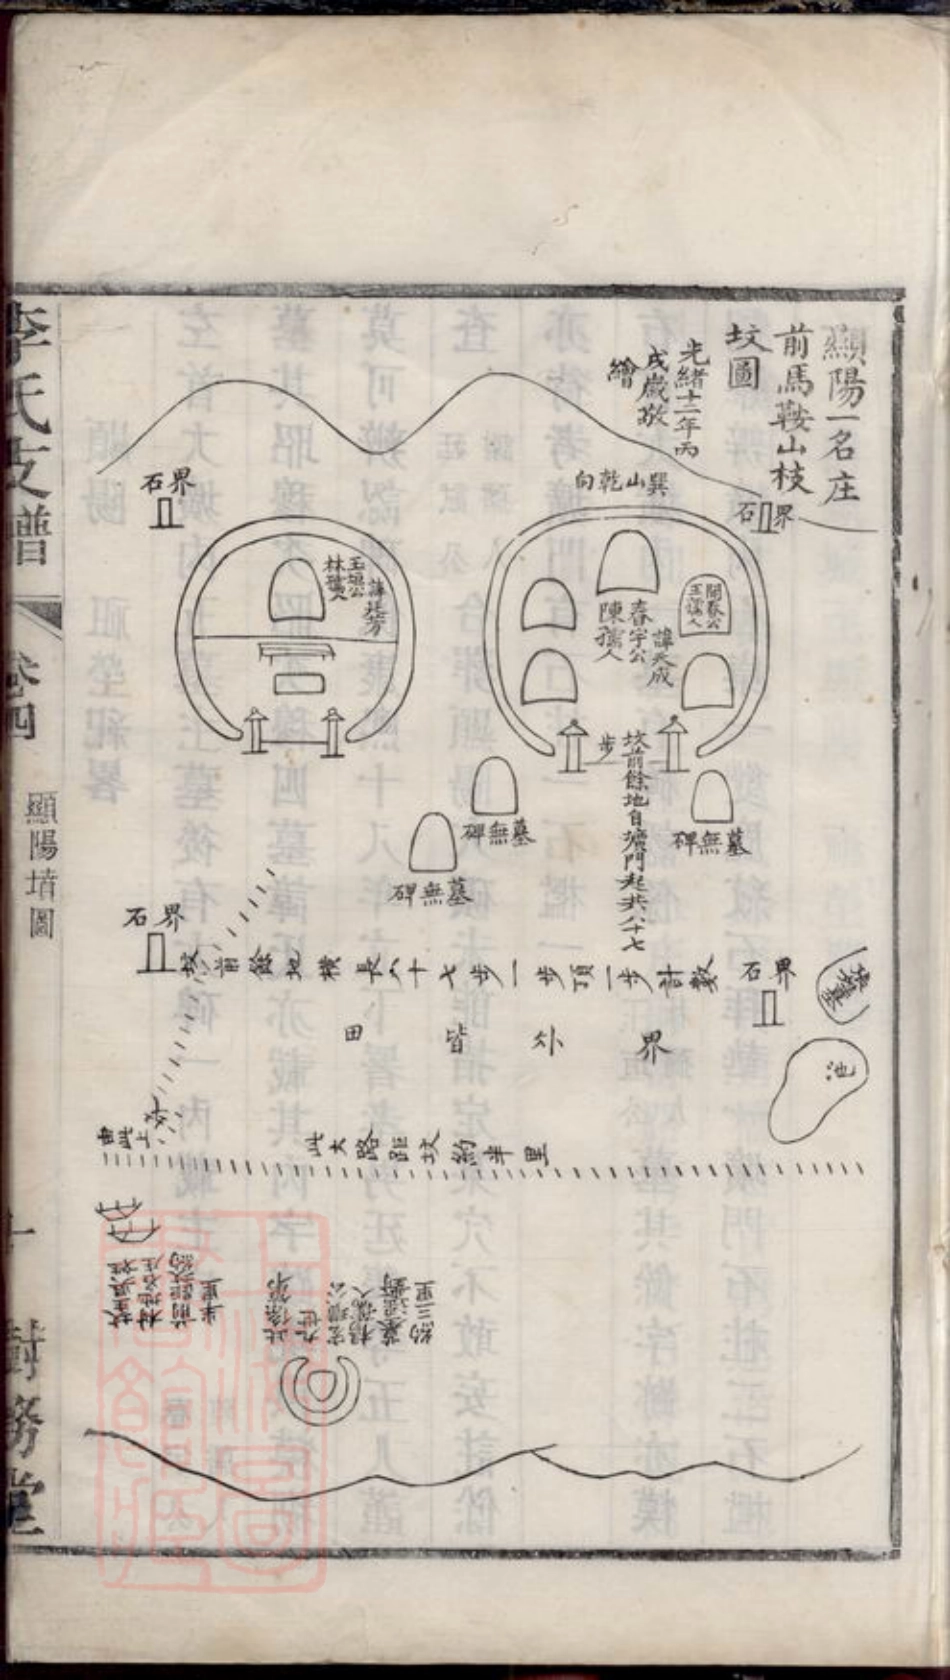 顯陽一名庄
前馬鞍山枝
坟圖
光緒十二年丙
戌歲敬
繪
向乾山巽
石界
石界
春宇公
陳孺人
諱天成
開春公
王孺人
玉垣公
林孺人
諱廷芳
坟前餘地自壙門起共八十七
步
碑無墓
碑無墓
碑無墓
石界
石界
坟前餘地橫長八十七步一步頂一步計數
田皆外界
池
由此上坟
此大路距坟約半里
李氏支譜
卷四
顯陽墳圖
十
樹務堂